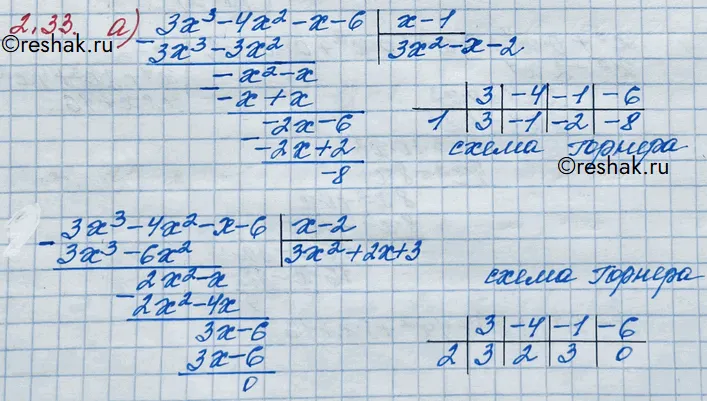 2.33. а) 3x³-4x²-x-6 | x-1
©reshak.ru
- 3x³-3x² | 3x²-x-2
-x²-x
- -x+x
-2x-6
- -2x+2
-8
3 | -4 | -1 | -6
1 | 3 | -1 | -2 | -8
схема Горнера
©reshak.ru
3x³-4x²-x-6 | x-2
- 3x³-6x² | 3x²+2x+3
2x²-x
- 2x²-4x
3x-6
3x-6
0
схема Горнера
3 | -4 | -1 | -6
2 | 3 | 2 | 3 | 0